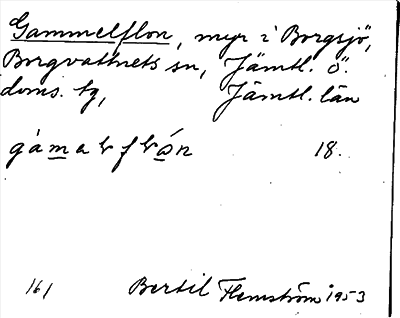 Gammelflon, myr i Borgsjö,
Borgvattnets sn, Jämtl. ö.
doms. tg, Jämtl. län
gámalflón 18.
161 Bertil Flemström 1953